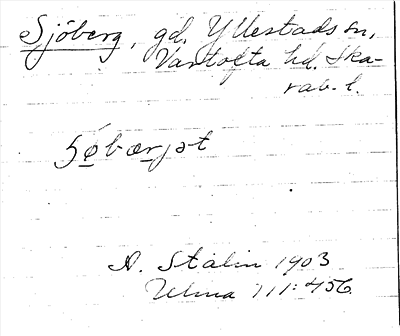 Sjöberg, gd. Yllestads sn,
Vartofta hd. Ska-
rab. l.
ʂøbærjət
A. Stalin 1903
Ulma 111:456